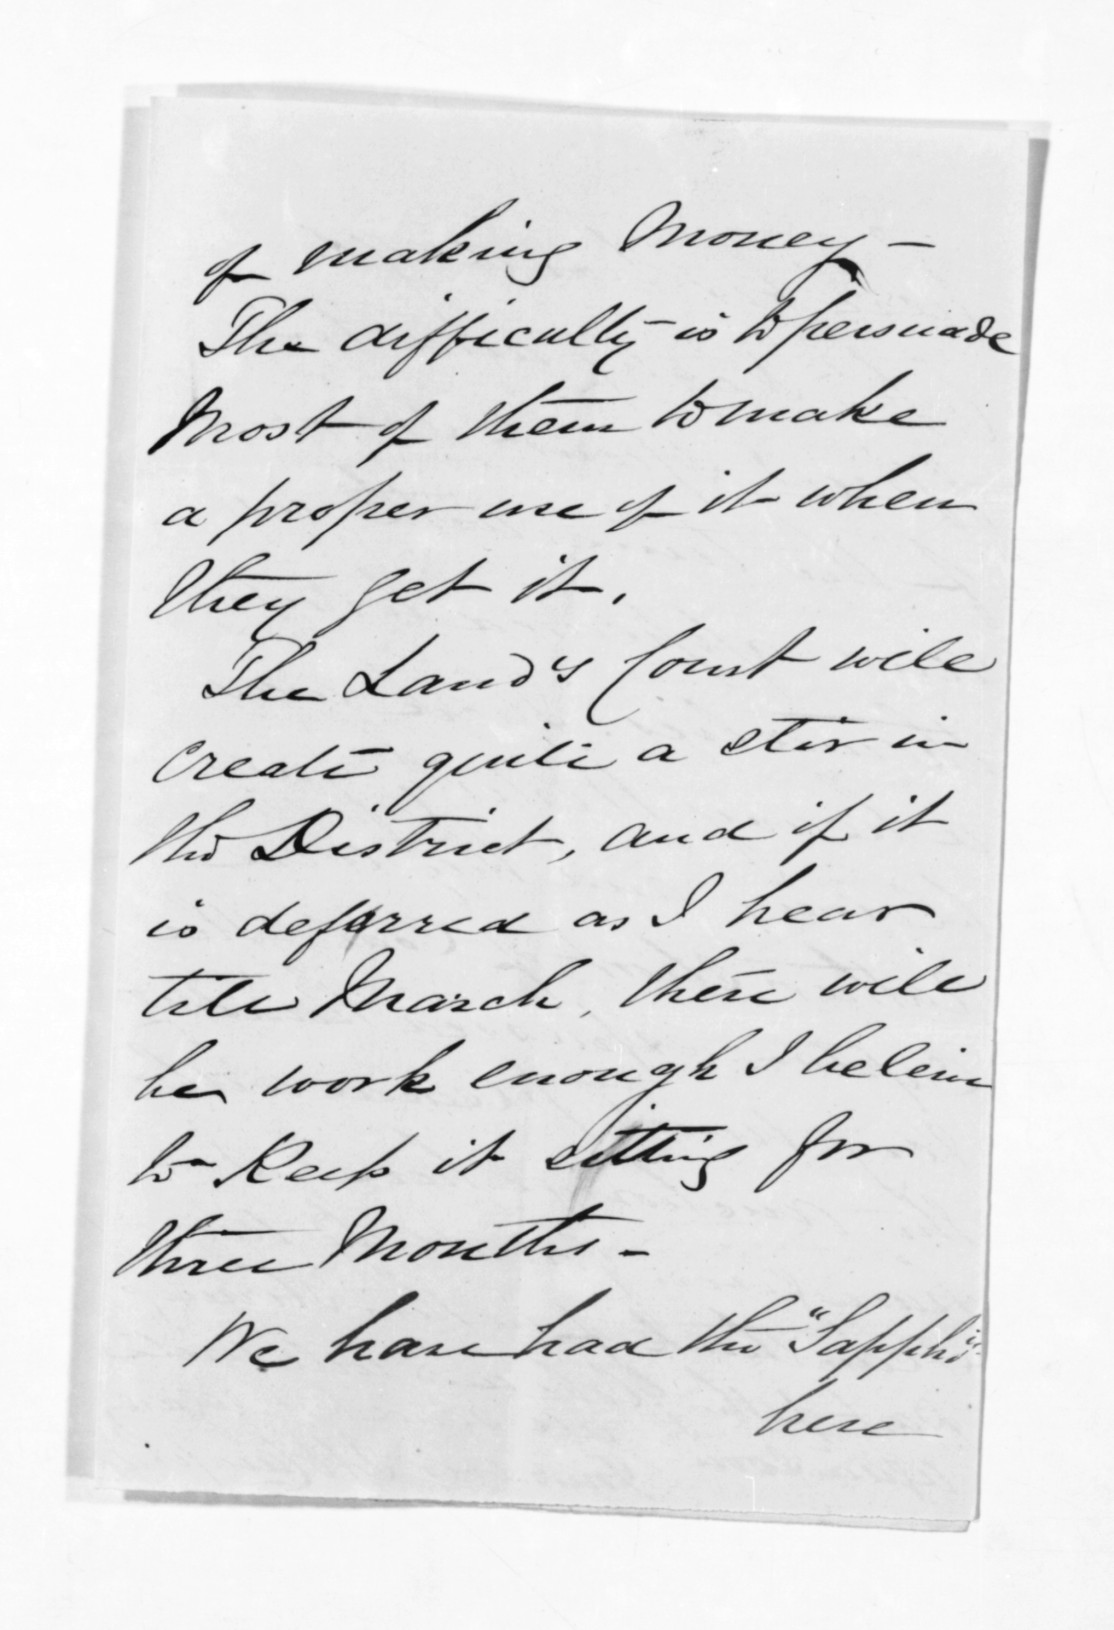 of making Money –
The difficulty is to persuade
Most of them to make
a proper use of it when
they get it.
The Land's Court will
create quite a stir in
the District, and if it
is deferred as I hear
till March, there will
be work enough I beleive
to Keep it sitting for
three Months –
We have had the "Sappho"
here